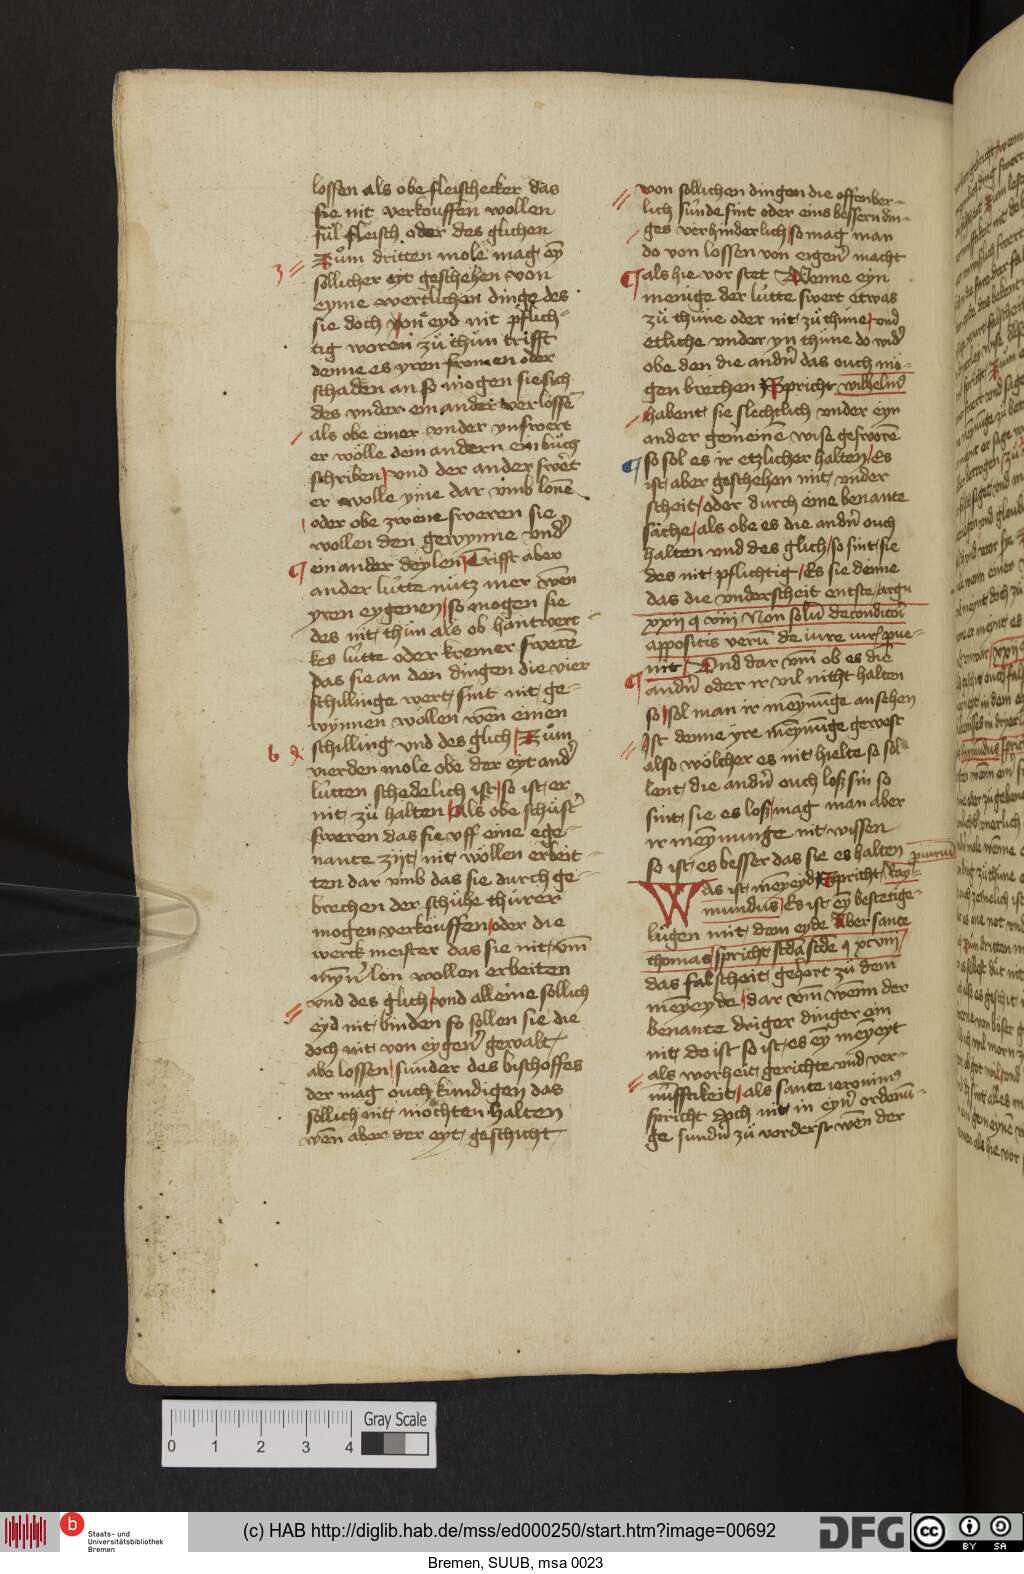 lossen als obe fleischecker das
sie nit verkouffen wollen
ful fleisch oder des glichen
Zum dritten mole mag ey
sollicher eyt geschehen von
eyme wertlichen dinge des
sie doch von eyd nit pflich-
tig woren zu thun trifft
denne es yren fromen oder
schaden an so mogen sie sich
des vnder ein ander verlossē
als obe einer vnder yn swert
er wolle dem andern ein buch
schriben vnd der ander swert
er wolle yme dar vmb lonē
oder obe zwene sweren sie
wollen den gewynne vnd
ein ander deylen Trifft aber
ander lutte nutz mer wen
yren eygenen so mogen sie
des nit thun als ob hantwert-
kes lutte oder kremer swerē
das sie an den dingen die vier
schillinge wert sint nit ge-
wynnen wollen wen einen
schilling vnd des glich Zum
vierden mole obe der eyt and
lutten schedelich ist so ist er
nit zu halten Als obe schust
sweren das sie vff eine ege-
nante zijt nit wollen erbeit-
ten dar vmb das sie durch ge-
brechen der schuhe thurer
mogen verkouffen oder die
werck meister das sie nit vm
myn lon wollen erbeiten
vnd des glich vnd alleine sollich
eyd nit binden so sollen sie die
doch nit von eygen gewalt
abe lossen sunder des bischoffes
der mag ouch kundigen das
sollich nit mochten halten
wen aber der eyt geschicht
von sollichen dingen die offenber-
lich sunde sint oder eins bessern din-
ges verhinderlich so mag man
do von lossen von eigen macht
als hie vor stet Wenne eyn
menige der lutte swert etwas
zu thune oder nit zu thune vnd
ettliche vnder yn thune do wid
obe den die andn das ouch mo-
gen brechen Spricht wilhelm
habent sie slechtlich vnder eyn
ander gemeine wise gesworē
so sol es ir etzlicher halten Es
ist aber geschehen mit vnder
scheit oder durch eine benante
sache als obe es die andn ouch
halten vnd des glich so sint sie
des nit pflichtig Es sie denne
das die vnderscheit entste argu
xxii q viii Non solu de conditōi
appositis veru de iure iur
nit Vnd dar vm ob es die
andn oder ir vil nitht halten
so sol man ir meynunge ansehen
Ist denne yre meynunge gewest
also wolcher es nit hielte so sol
lent die andn ouch loß sin so
sint sie es loß mag man aber
ir meynunge nit wissen
so ist es besser das sie es halten
periurium
Was ist meyneyd Spricht Ray-
mundus Es ist ey bestetige-
lugen mit dem eyde Aber sante
thomas spricht scda scde q xcviii
das falscheit gehort zu dem
meyneyde dar vm wenn der
benante driger dinger ein
nit do ist so ist es ey meyneyt
als worheit gerichte vnd ver-
nufftikeit als sante ieronimus
spricht doch nit in eyn ordenu-
ge sundn zu vorderst wen der
0 1 2 3 4
Gray Scale
b
Staats- und
Universitätsbibliothek
Bremen
(c) HAB http://diglib.hab.de/mss/ed000250/start.htm?image=00692
DFG
cc
BY SA
Bremen, SUUB, msa 0023